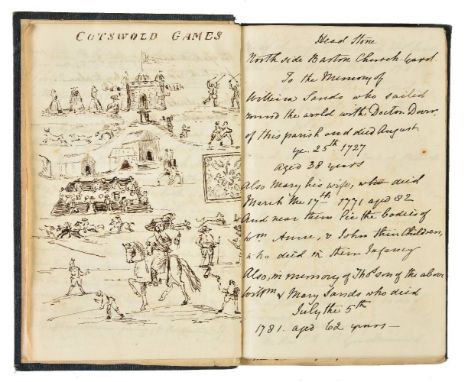 COTSWOLD GAMES
Head Stone
North side Barton Church Yard.
To the Memory of
William Sands who sailed
round the world with Doctor Dover
of this parish and died August
ye. 25th 1727
aged 38 years
Also Mary his wife, who died
March the 17th 1771 aged 82
And near them lie the bodies of
Wm. Anne, & John their Children,
who died in their Infancy
Also, in memory of Thos. son of the above
Wm. & Mary Sands who died
July the 5th
1781. aged 62 years—